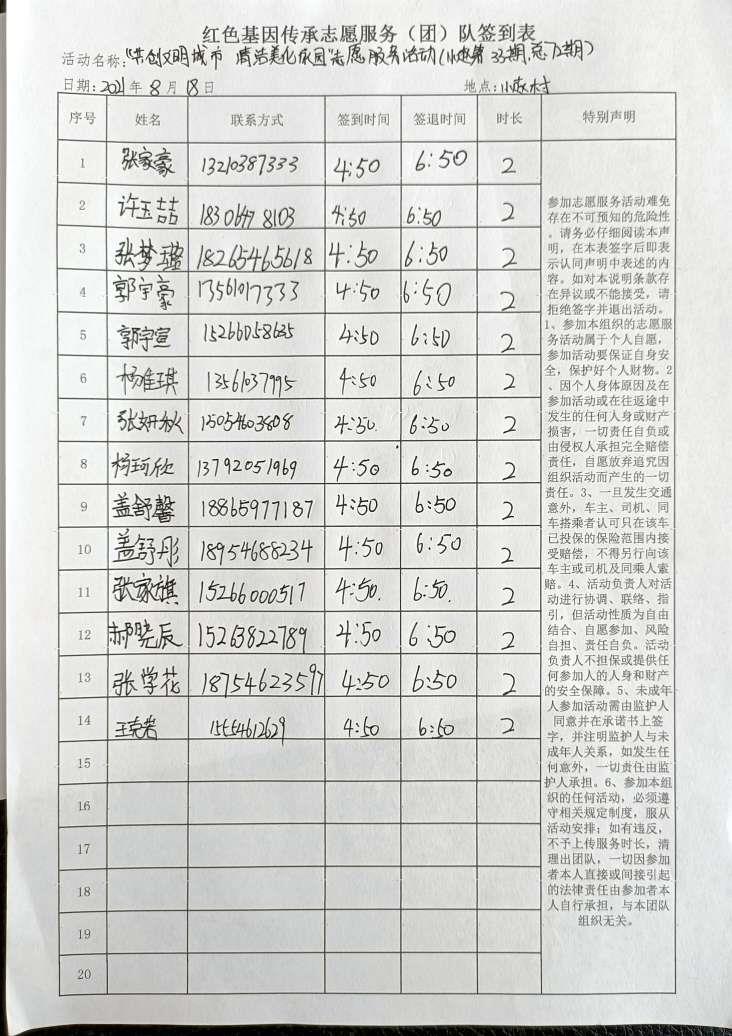 红色基因传承志愿服务（团）队签到表
活动名称："共创文明城市 清洁美化家园"志愿服务活动（小 第33期，总72期）
日期：2021年8月18日 地点：小 村
序号 姓名 联系方式 签到时间 签退时间 时长 特别声明
1 张家豪 13210387333 4:50 6:50 2
2 许玉喆 18306478103 4:50 6:50 2
3 张梦璐 18265465618 4:50 6:50 2
4 郭宇豪 13561017333 4:50 6:50 2
5 郭宇宣 15266058635 4:50 6:50 2
6 杨惟琪 13561037995 4:50 6:50 2
7 张妍秋 15054603808 4:50. 6:50 2
8 杨珂欣 13792051969 4:50 6:50 2
9 盖舒馨 18865977187 4:50 6:50 2
10 盖舒彤 18954688234 4:50 6:50 2
11 张家旗 15266000517 4:50. 6:50. 2
12 郝晓辰 15263822789 4:50 6:50 2
13 张学花 18754623597 4:50 6:50 2
14 王克岩 15554612629 4:50 6:50 2
15
16
17
18
19
20
参加志愿服务活动难免
存在不可预知的危险性
。请务必仔细阅读本声
明，在本表签字后即表
示认同声明中表述的内
容。如对本说明条款存
在异议或不能接受，请
拒绝签字并退出活动。
1、参加本组织的志愿服
务活动属于个人自愿，
参加活动要保证自身安
全，保护好个人财物。2
、因个人身体原因及在
参加活动或在往返途中
发生的任何人身或财产
损害，一切责任自负或
由侵权人承担完全赔偿
责任，自愿放弃追究因
组织活动而产生的一切
责任。3、一旦发生交通
意外，车主、司机、同
车搭乘者认可只在该车
已投保的保险范围内接
受赔偿，不得另行向该
车主或司机及同乘人索
赔。4、活动负责人对活
动进行协调、联络、指
引，但活动性质为自由
结合、自愿参加、风险
自担、责任自负。活动
负责人不担保或提供任
何参加人的人身和财产
的安全保障。5、未成年
人参加活动需由监护人
同意并在承诺书上签
字，并注明监护人与未
成年人关系，如发生任
何意外，一切责任由监
护人承担。6、参加本组
织的任何活动，必须遵
守相关规定制度，服从
活动安排；如有违反，
不予上传服务时长，清
理出团队，一切因参加
者本人直接或间接引起
的法律责任由参加者本
人自行承担，与本团队
组织无关。